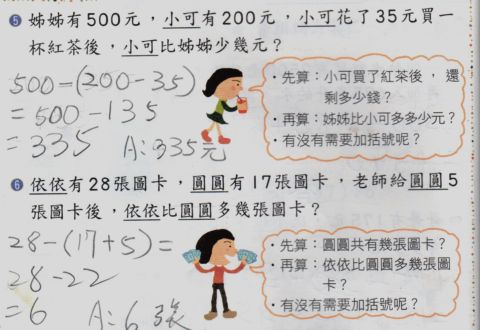 5 姊姊有500元，小可有200元，小可花了35元買一
杯紅茶後，小可比姊姊少幾元？
500-(200-35)
=500-135
=335 A:335元
・先算：小可買了紅茶後，還
剩多少錢？
・再算：姊姊比小可多多少元？
・有沒有需要加括號呢？
6 依依有28張圖卡，圓圓有17張圖卡，老師給圓圓5
張圖卡後，依依比圓圓多幾張圖卡？
28-(17+5)=
28-22
=6 A:6張
・先算：圓圓共有幾張圖卡？
・再算：依依比圓圓多幾張圖
卡？
・有沒有需要加括號呢？